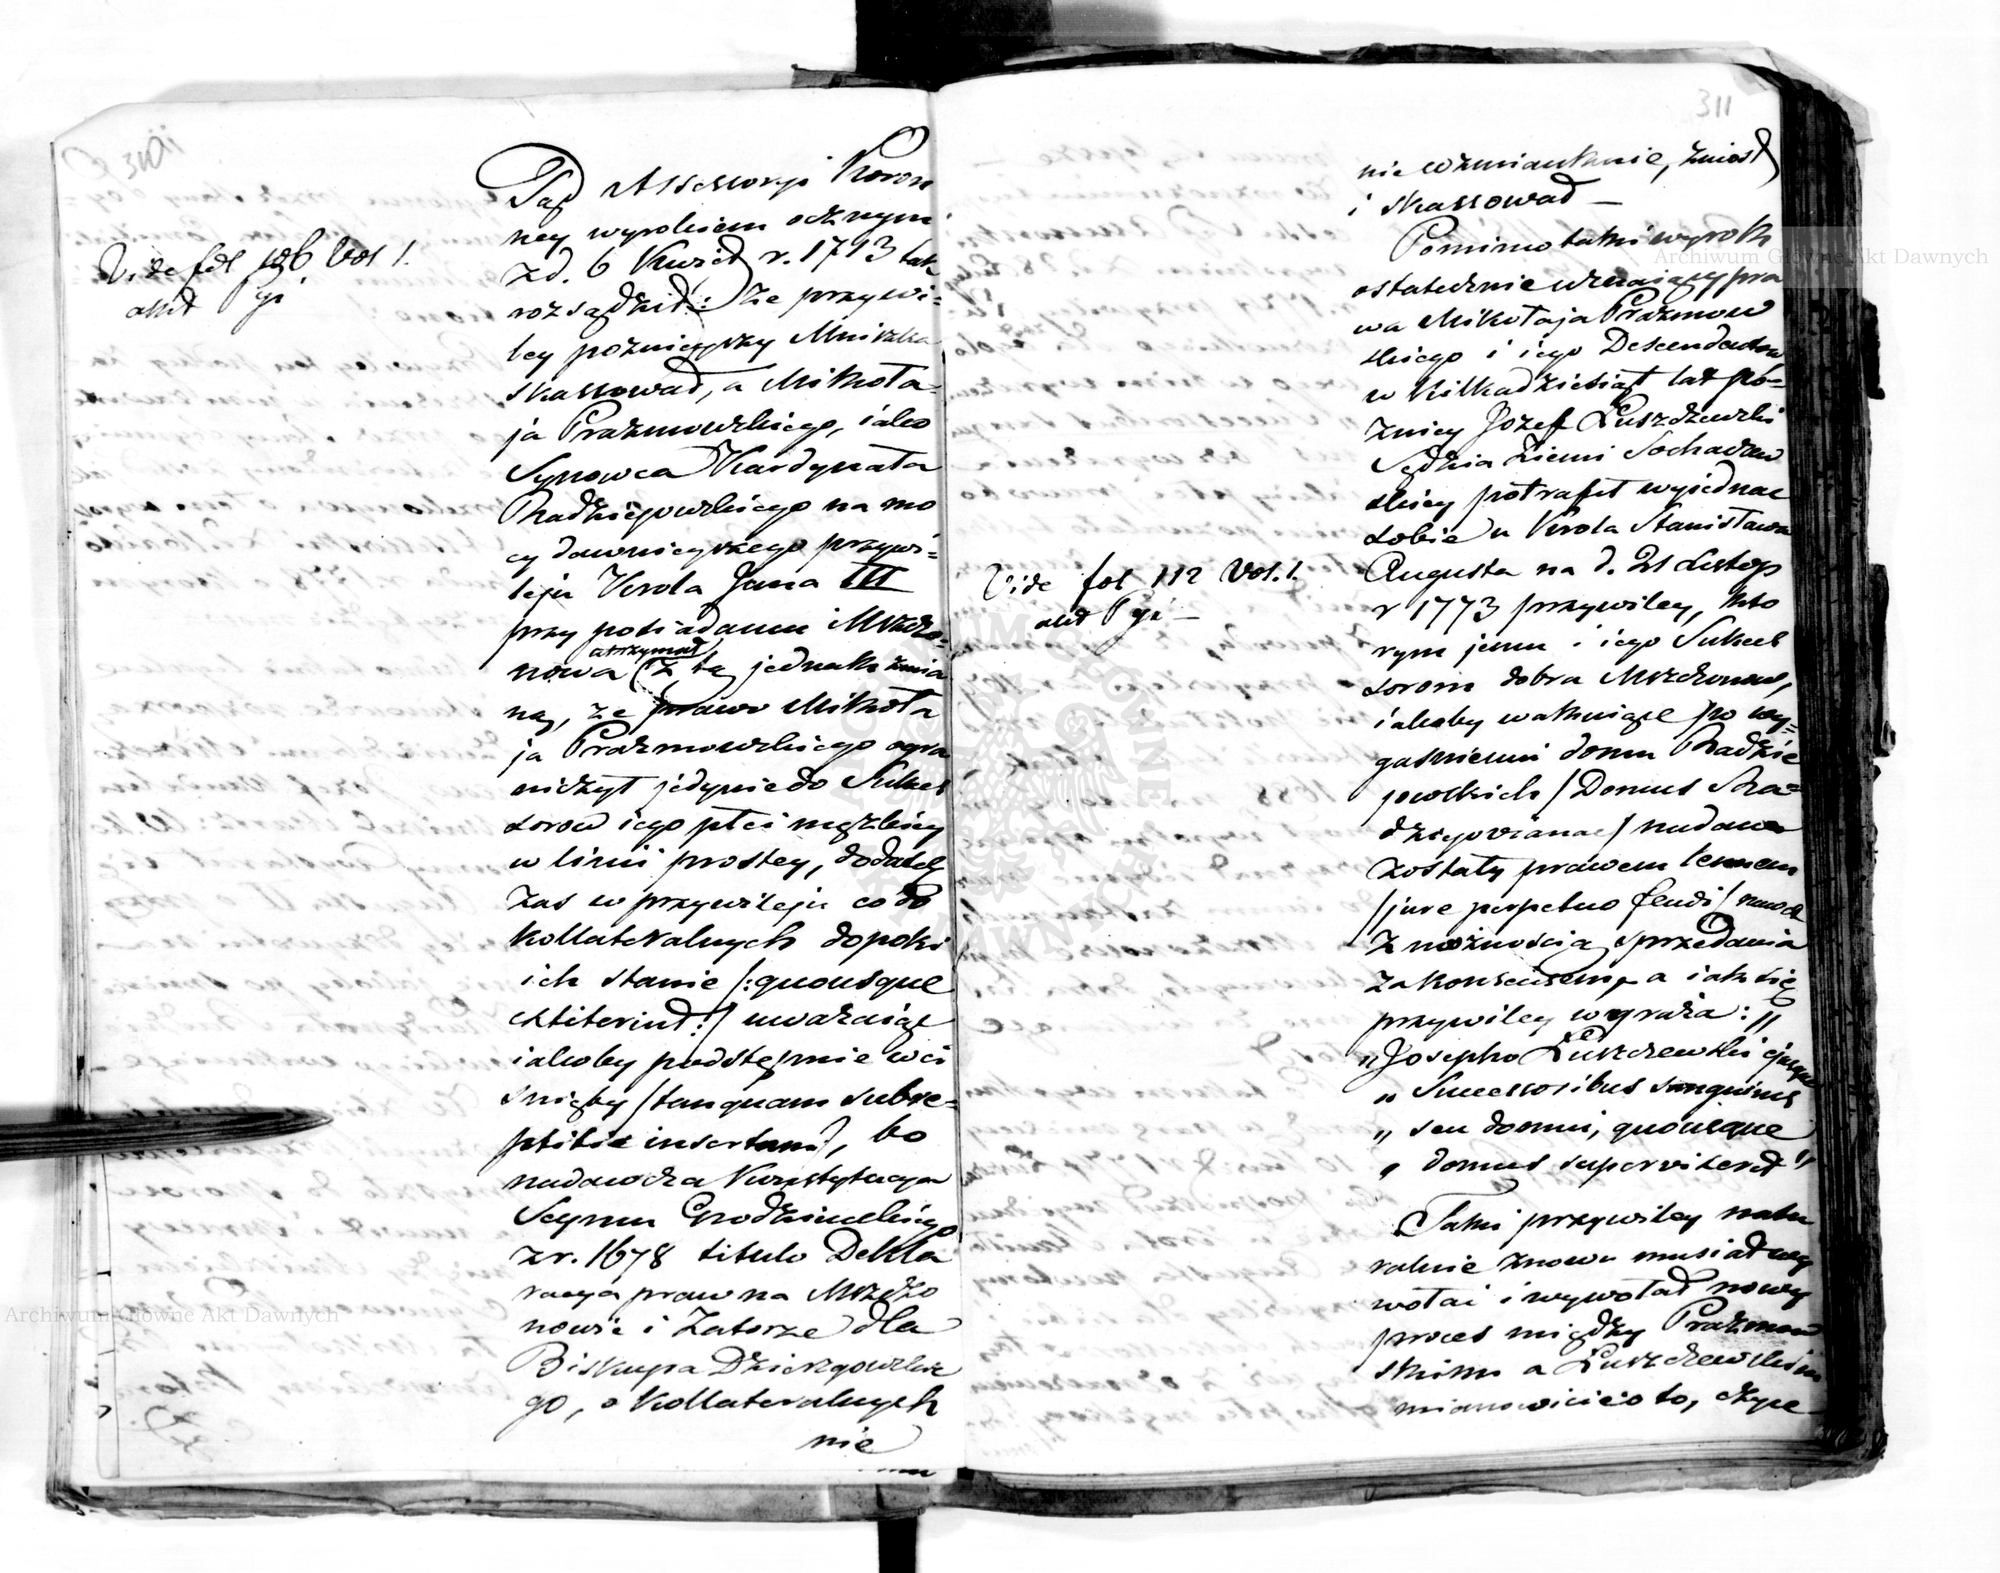 310
Vide fol 106 Vol 1.
akt Pyi
Sąd Assessoryi Koron
ney wyrokiem ocznym
z d. 6 Kwiet r. 1713 tak
rozsądził: że przywi-
ley poźnieyszy Mniszka
skassował, a Mikoła-
ja Prażmowskiego, iako
Synowca Kardynała
Radziejowskiego na mo
cy dawnieyszego przywi=
leju Króla Jana III
przy posiadaniu Mszczo-
otrzymał
nowa (z tą jednak zmia
ną, że prawo Mikoła
ja Prażmowskiego ogra
niczył jedynie do Sukces
sorow iego płci męzkiey
w linii prostey, dodatek
zas w przywileju co do
kollateralnych dopóki
ich stanie /:quousque
extiterint:/ uważaiąc
iakoby podstępnie wci
śnięty /tanquam subre=
ptitie insertam/, bo
nadawcza Konstytucya
Seymu Grodzieńskiego
z r. 1678 titulo Dekla
racya praw na Mszczo
nowie i Zatorze dla
Biskupa Dzierzgowskie
go, o Kollateralnych
nie
311
nie wzmiankuie, zniosł
i skassował —
Pomimo taki wyrok
ostatecznie uznaiący pra
wa Mikołaja Prażmow
skiego i iego Descendentow
w kilkadziesiąt lat pó-
zniey Józef Łuszczewski
Sędzia Ziemi Sochaczew
skiey potrafił wyiednac
sobie u Króla Stanisława
Augusta na d. 21 Listop
r 1773 przywiley, kto
rym jemu i iego Sukces
sorom dobra Mszczonow,
iakoby wakuiące po wy=
gasnieniu domu Radzie
jowskich /Domus Ra=
dziejovianae/ nadane
zostały prawem lennem
/jure perpetuo feudi/ nawet
z możnością sprzedania
za konsensem, a iak się
przywiley wyraża: "
Vide fol 112 Vol. 1.
akt Pyi —
" Josepho Łuszczewski ejusque
" Successoribus sanguinis
" seu domui, quousque
" domus supervixerit "
Taki przywiley natu
ralnie znowu musiał wy
wołać i wywołał nowy
proces między Prażmow
skimi a Łuszczewskim
mianowicie o to, czyli
Archiwum Główne Akt Dawnych
Archiwum Główne Akt Dawnych
ARCHIWUM GŁÓWNE AKT DAWNYCH